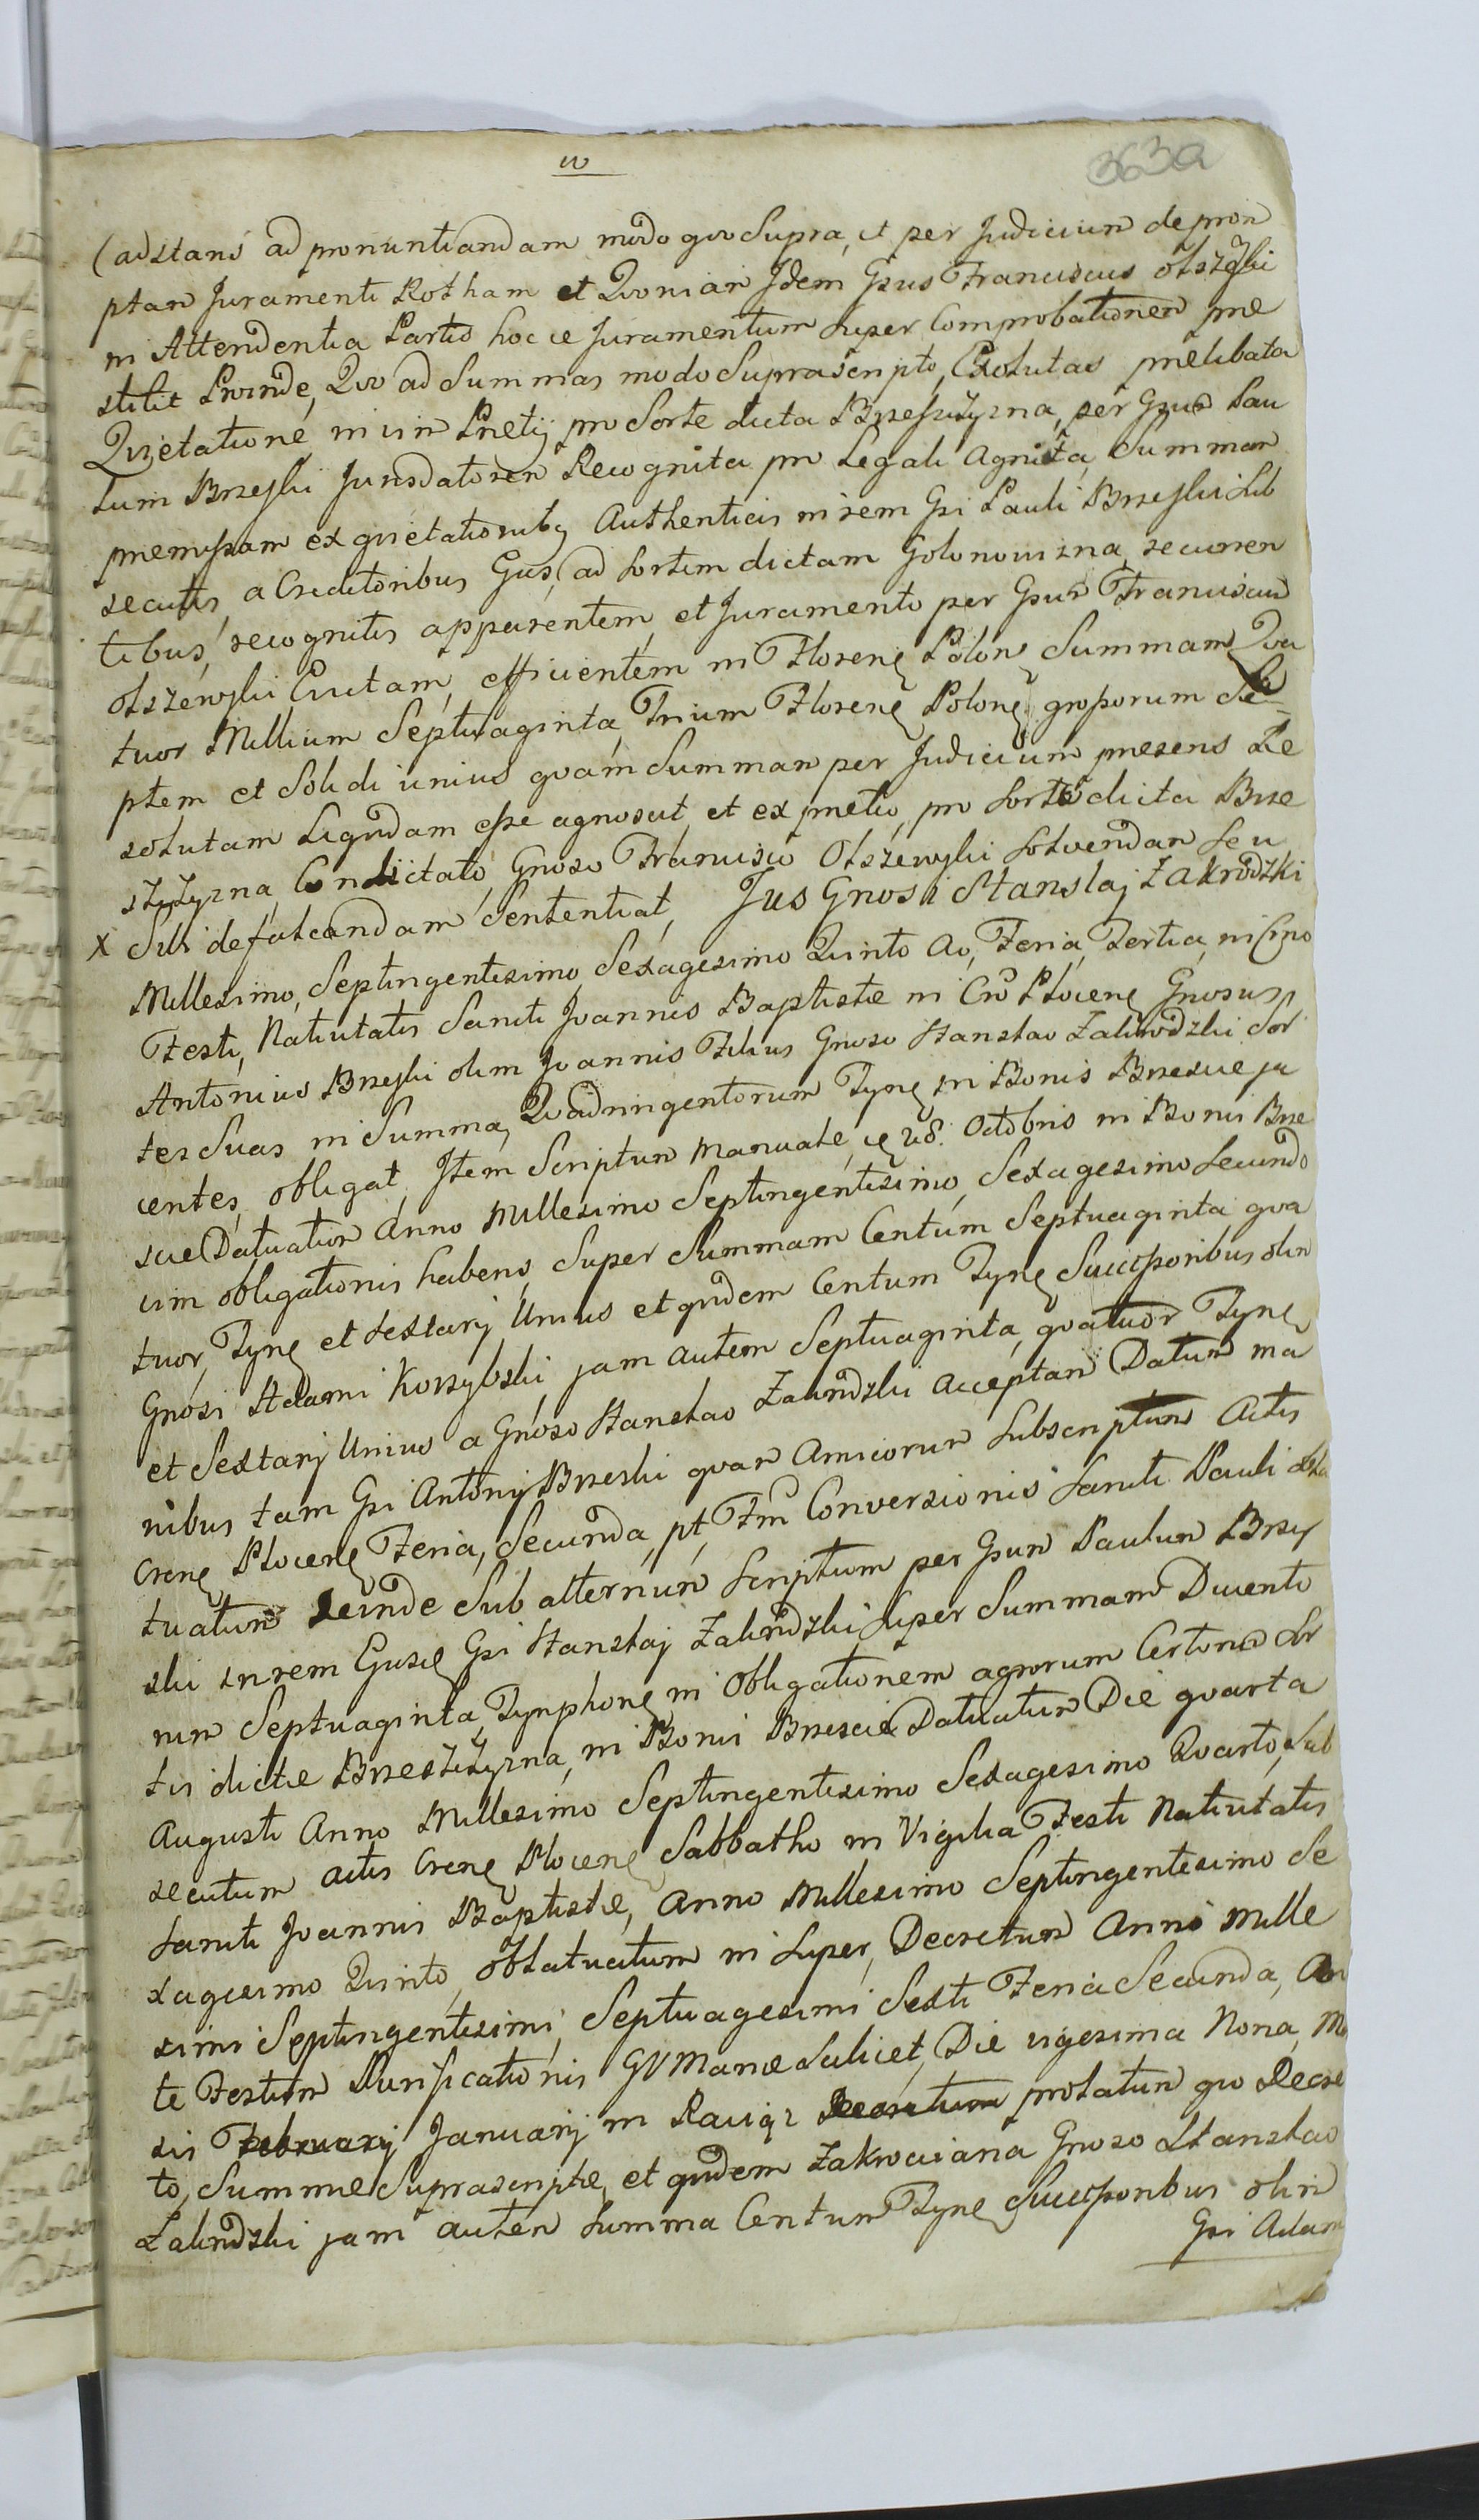 w
363a
(adstans ad pronuntiandam modo quo Supra, et per Judicium depron
ptam Juramenti Rotham et Quoniam Idem Gsus Franciscus Olszeski
in Attendentia Partis hocce Juramentum super Comprobationem pre
stitit Proinde, Quo ad Summas modo Suprascripto, Exolutas prælibata
Quietatione, in vim Pretij pro Sorte dicta Brzeszczyzna, per Gsum Pau
lum Brzeski Jurisdatorem Recognita pro Legali Agnita, Summam
premissam ex quietationibus Authenticis in rem Gsi Pauli Brzeski sub
secutis, a Creditoribus Gus, ad Sortem dictam Golonowizna, recurren
tibus, recognitis apparentem, et Juramento per Gsum Franciscum
Olszewski Evictam, efficientem in Florenis Polon Summam Qua
tuor Millium Septuaginta, Trium Florenis Polonis grossorum Se
ptem et Solidi unius quam Summam per Judicium presens Re
solutam Liquidam esse agnoscit, et ex pretio, pro Sorte dicta Brze
szczyzna, Condictato, Gnoso Francisco Olszewski Solvendam seu
x Sibi defalcandam Sententiat, Jus Gnosi Stanslaj Zakrodzki
Millesimo, Septingentesimo, Sexagesimo Quinto Ao, Feria, Tertia, in Crno
Festi, Nativitatis Sancti Joannis Baptistæ in Cro Plocens Gnosus
Antonius Brzeski olim Joannis Filius Gnoso Stanslao Zakrodzki Sor
tes Suas in Summa, Quadringentorum Tyns in Bonis Brzescie ja
centes, obligat, Item Scriptum Manuale, 28. Octobris in Bonis Brze
scie Datuatum Anno Millesimo Septingentesimo, Sexagesimo Secundo
vim obligationis habens, Super Summam Centum Septuaginta qua
tuor, Tyns et Sextarij Unius et quidem Centum Tyns Successoribus olim
Gnosi Adami Korzybski jam autem Septuaginta, quatuor Tyns
et Sextarij Unius a Gnoso Stanslao Zakrodzki Acceptam Datum ma
nibus tam Gsi Antonij Brzeski quam Amicorum Subscriptum Actis
Crens Plocens Feria, Secunda, pt, Ftm Conversionis Sancti Pauli
tuatum deinde Sub alternum Scriptum per Gsum Paulum Brze
ski in rem Gsi Stanslaj Zakrodzki Super Summam Ducento
rum Septuaginta, Tynphons in Obligationem agrorum Certorum Sor
tis dictæ Brzeszczyzna, in Bonis Brzescie Datuatum Die quarta
Augusti Anno Millesimo Septingentesimo Sexagesimo Quarto, sub
secutum actis Crens Plocens Sabbatho in Vigilia Festi Nativitatis
Sancti Joannis Baptistæ, Anno Millesimo Septingentesimo Se
xagesimo Quinto, oblatuatum in super, Decretum Anni Mille
simi Septingentesimi, Septuagesimi Sexti Feria Secunda, An
te Festum Purificationis GV Mariæ Scilicet, Die vigesima Nona, Me
sis February Januarij in Raciąz Decretum prolatum quo Decre
to, Summæ Suprascriptæ, et quidem Zakrociana Gnoso Stanslao
Zakrodzki jam autem Summa Centum Tyns Successoribus olim
Gsi Adam